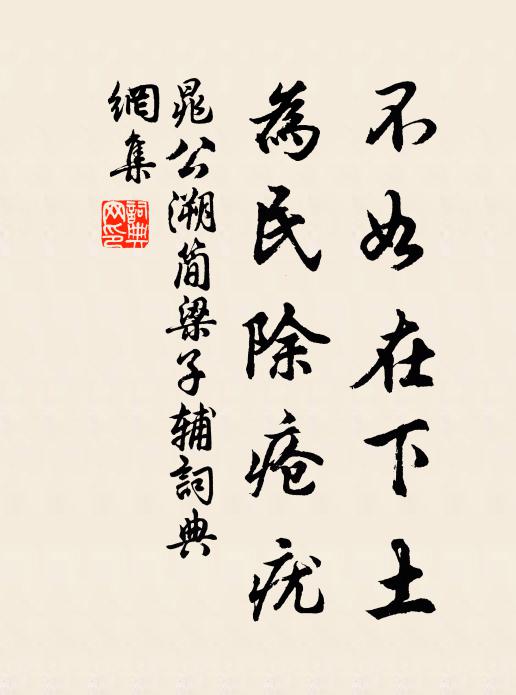 不如在下土
為民除瘡疣
晁公溯简梁子辅詞典
網集
詞典
网印